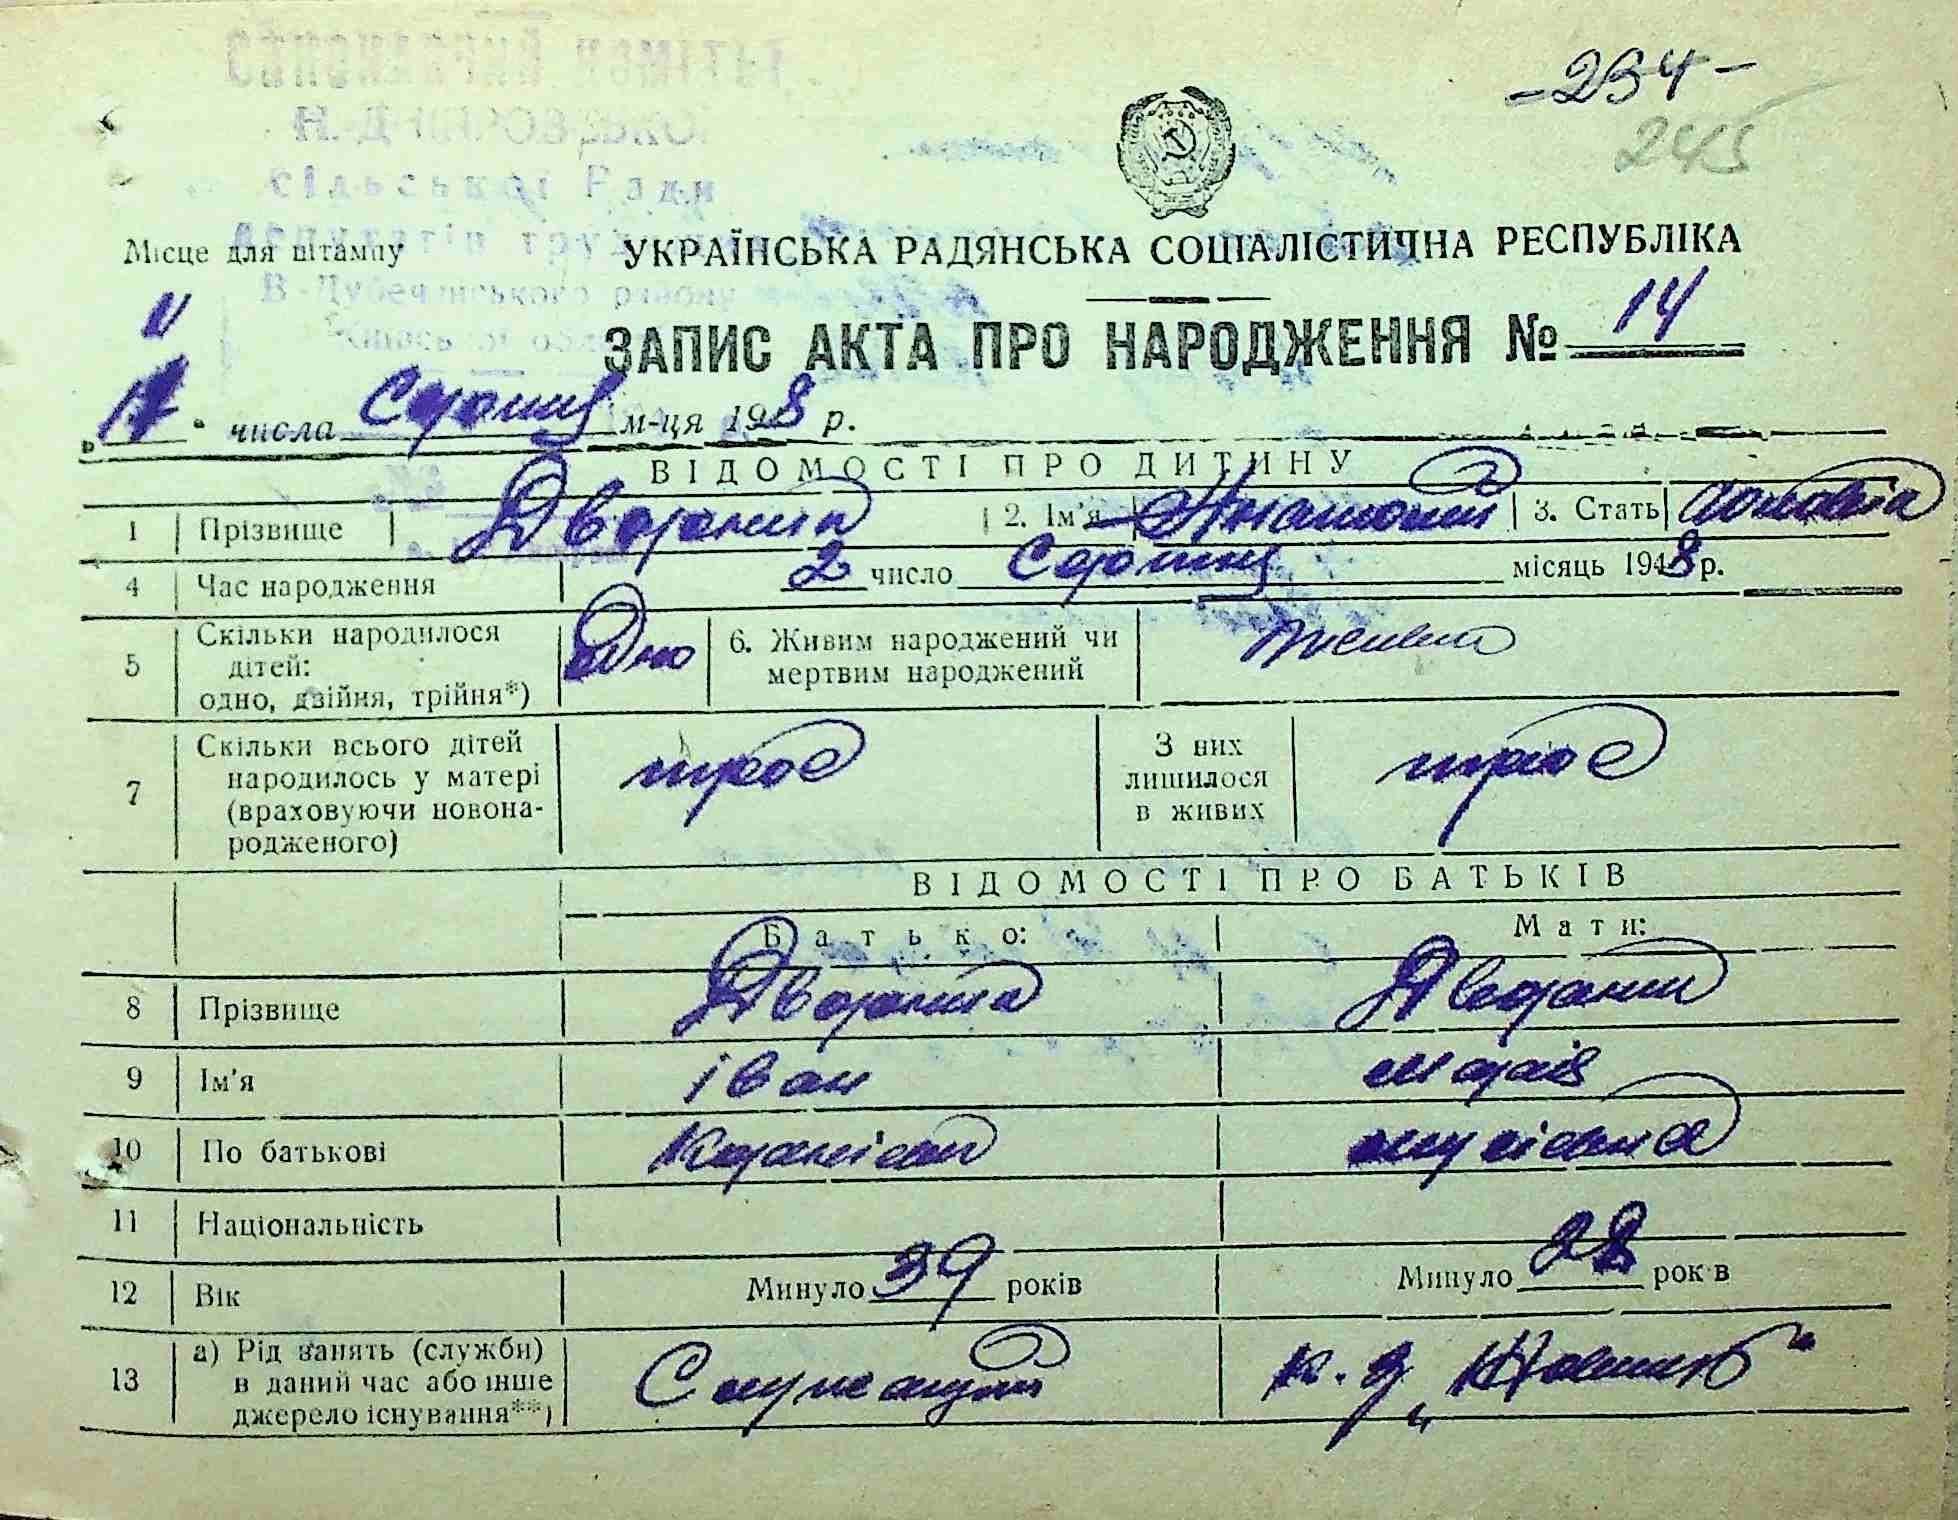 -234-
245
сільської Ради
Місце для штампу
УКРАЇНСЬКА РАДЯНСЬКА СОЦІАЛІСТИЧНА РЕСПУБЛІКА
ЗАПИС АКТА ПРО НАРОДЖЕННЯ № 14
числа Серпня м-ця 1948 р.
ВІДОМОСТІ ПРО ДИТИНУ
1 Прізвище 2. Ім'я Анатолій 3. Стать чоловіча
4 Час народження 2 число Серпня місяць 1948 р.
5 Скільки народилося дітей: одно, двійня, трійня*) Одно 6. Живим народжений чи мертвим народжений
7 Скільки всього дітей народилось у матері (враховуючи новонародженого) троє З них лишилося в живих троє
ВІДОМОСТІ ПРО БАТЬКІВ
Батько: Мати:
8 Прізвище
9 Ім'я Іван Марія
10 По батькові
11 Національність
12 Вік Минуло 39 років Минуло 28 рок в
13 а) Рід занять (служби) в даний час або інше джерело існування**)